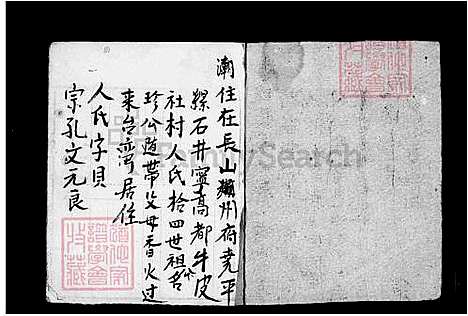 潮住在長山潮州府堯平
縣石井寧高都牛皮
社村人氏拾四世祖名
珍公隨帶父母香火過
來台灣居住
人氏字貝
宗孔文元良
FamilySearch